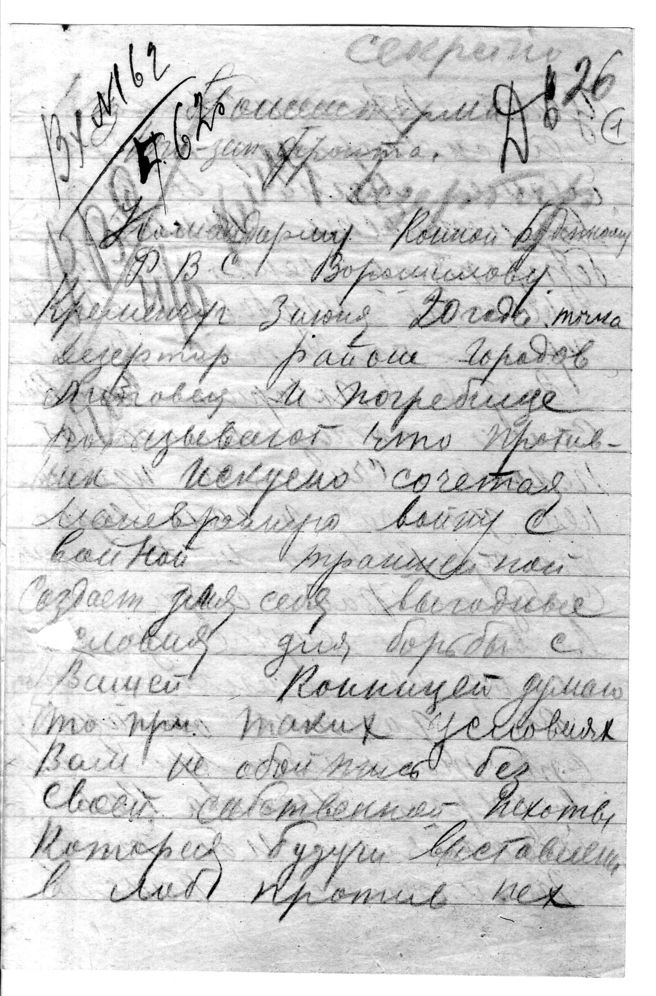 секретно
Вх №162
7.62
26
1
Командарму Конной Буденному
Р В С Ворошилову
Кременчуг 3 июня 20 года точка
дезертир район городов
Липовец и Погребище
показывают что против-
ник искусно сочетая
маневренную войну с
войной траншейной
создает для себя выгодные
словия для борьбы с
Вашей Конницей думаю
что при таких условиях
Вам не обойтись без
своей собственной пехоты
которая будучи выставлена
в лоб против пех